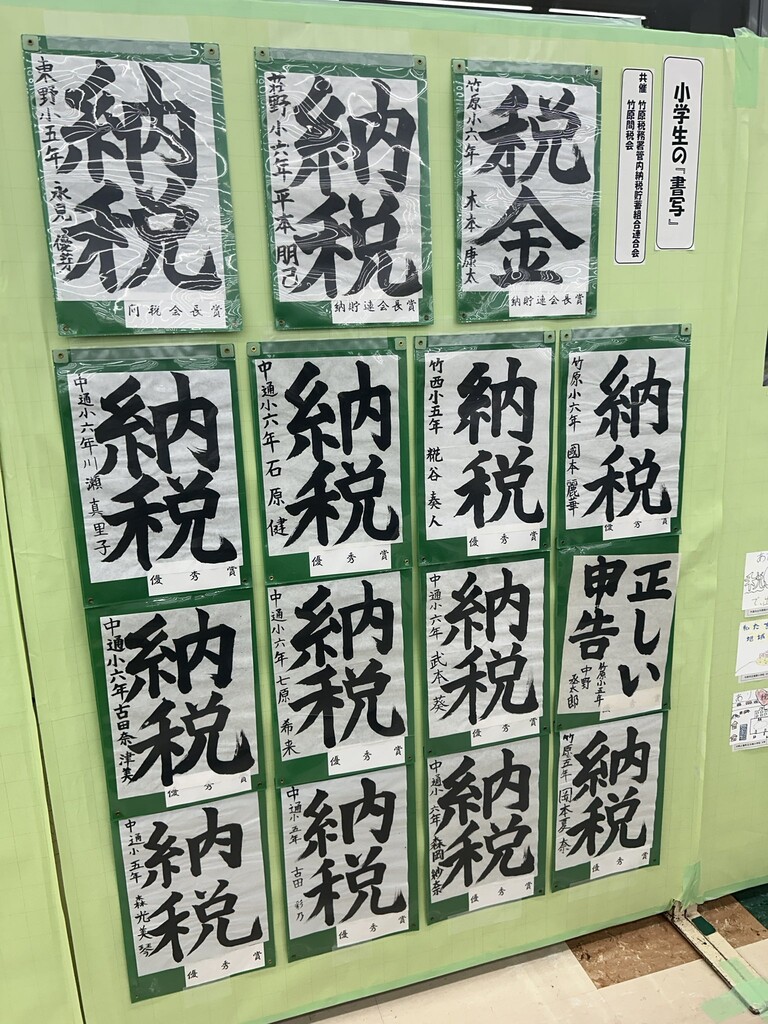 小学生の『書写』
共催 竹原税務署管内納税貯蓄組合連合会
竹原間税会
税金
竹原小六年 木本 康太
納貯連会長賞
納税
荘野小六年 平本 朋己
納貯連会長賞
納税
東野小五年 永見 優芽
間税会長賞
納税
竹原小六年 國本 麗華
優秀
納税
竹西小五年 糀谷 奏人
優秀賞
納税
中通小六年 石原 健
優秀賞
納税
中通小六年 川瀬 真里子
優秀賞
正しい
申告
竹原小五年
中野 丞太郎
納税
中通小六年 武本 葵
優秀賞
納税
中通小六年 七原 希来
優秀賞
納税
中通小六年 古田 奈津美
優秀
納税
竹原五年 岡本 夏奈
優秀賞
納税
中通小六年 森岡 紗奈
優秀賞
納税
中通小五年 古田 彩乃
優秀賞
納税
中通小五年 森光 美琴
優秀賞